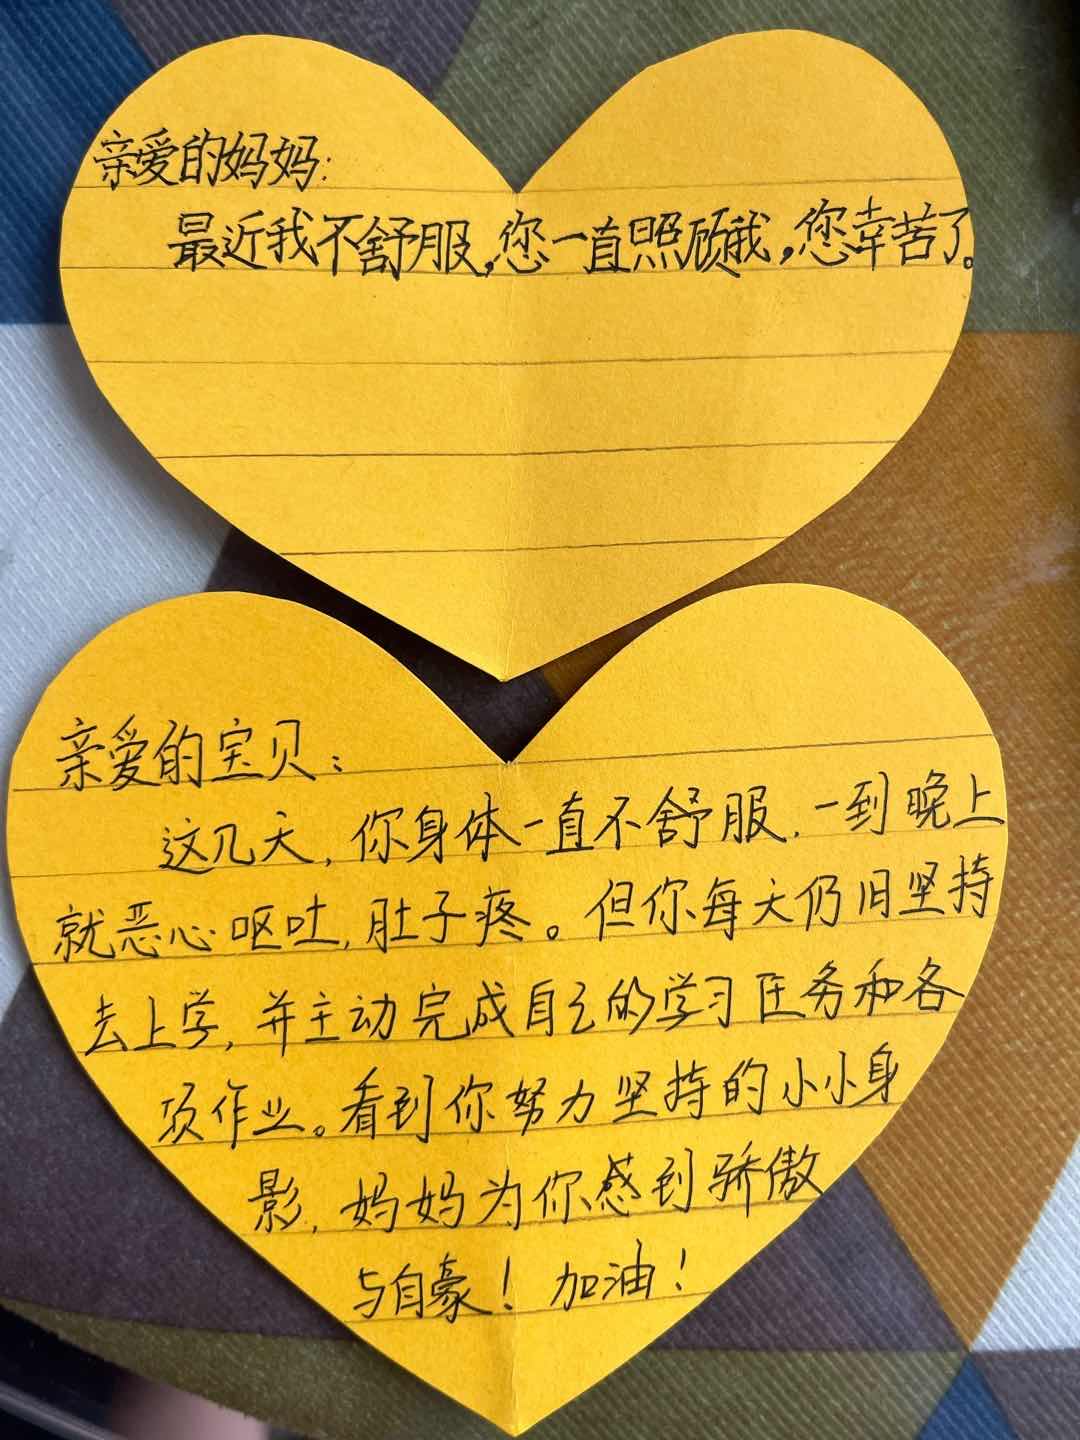 亲爱的妈妈:
最近我不舒服,您一直照顾我,您幸苦了。
亲爱的宝贝:
这几天,你身体一直不舒服.一到晚上
就恶心呕吐,肚子疼。但你每天仍旧坚持
去上学,并主动完成自己的学习任务和各
项作业。看到你努力坚持的小小身
影,妈妈为你感到骄傲
与自豪!加油!